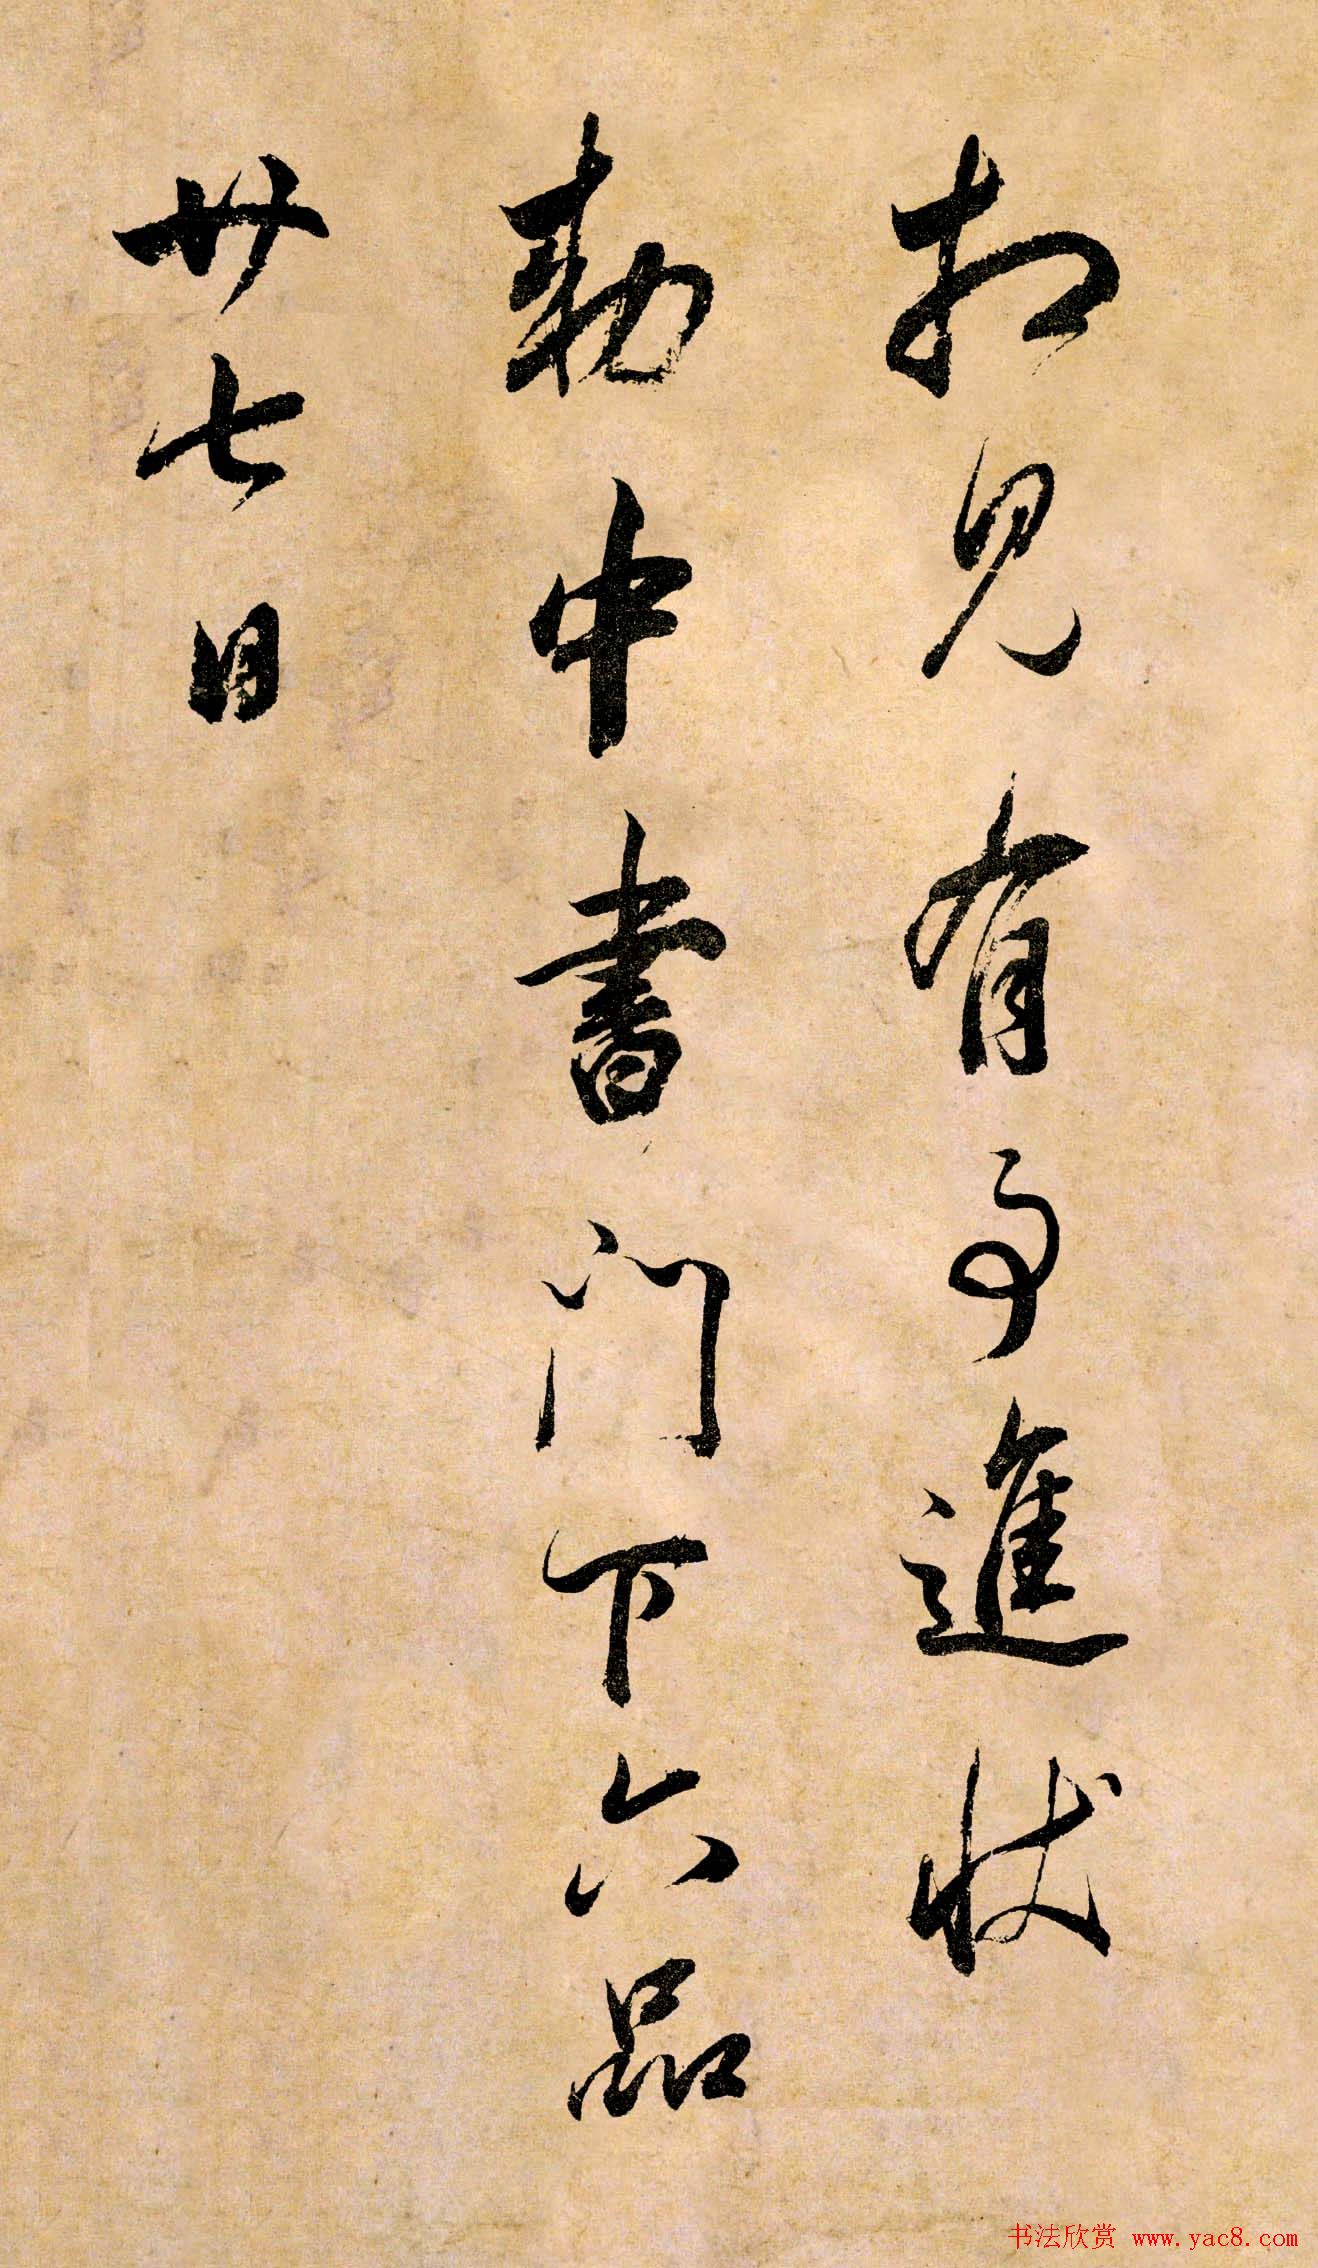 相見有事進狀
勅中書門下六品
廿七日
书法欣赏 www.yac8.com